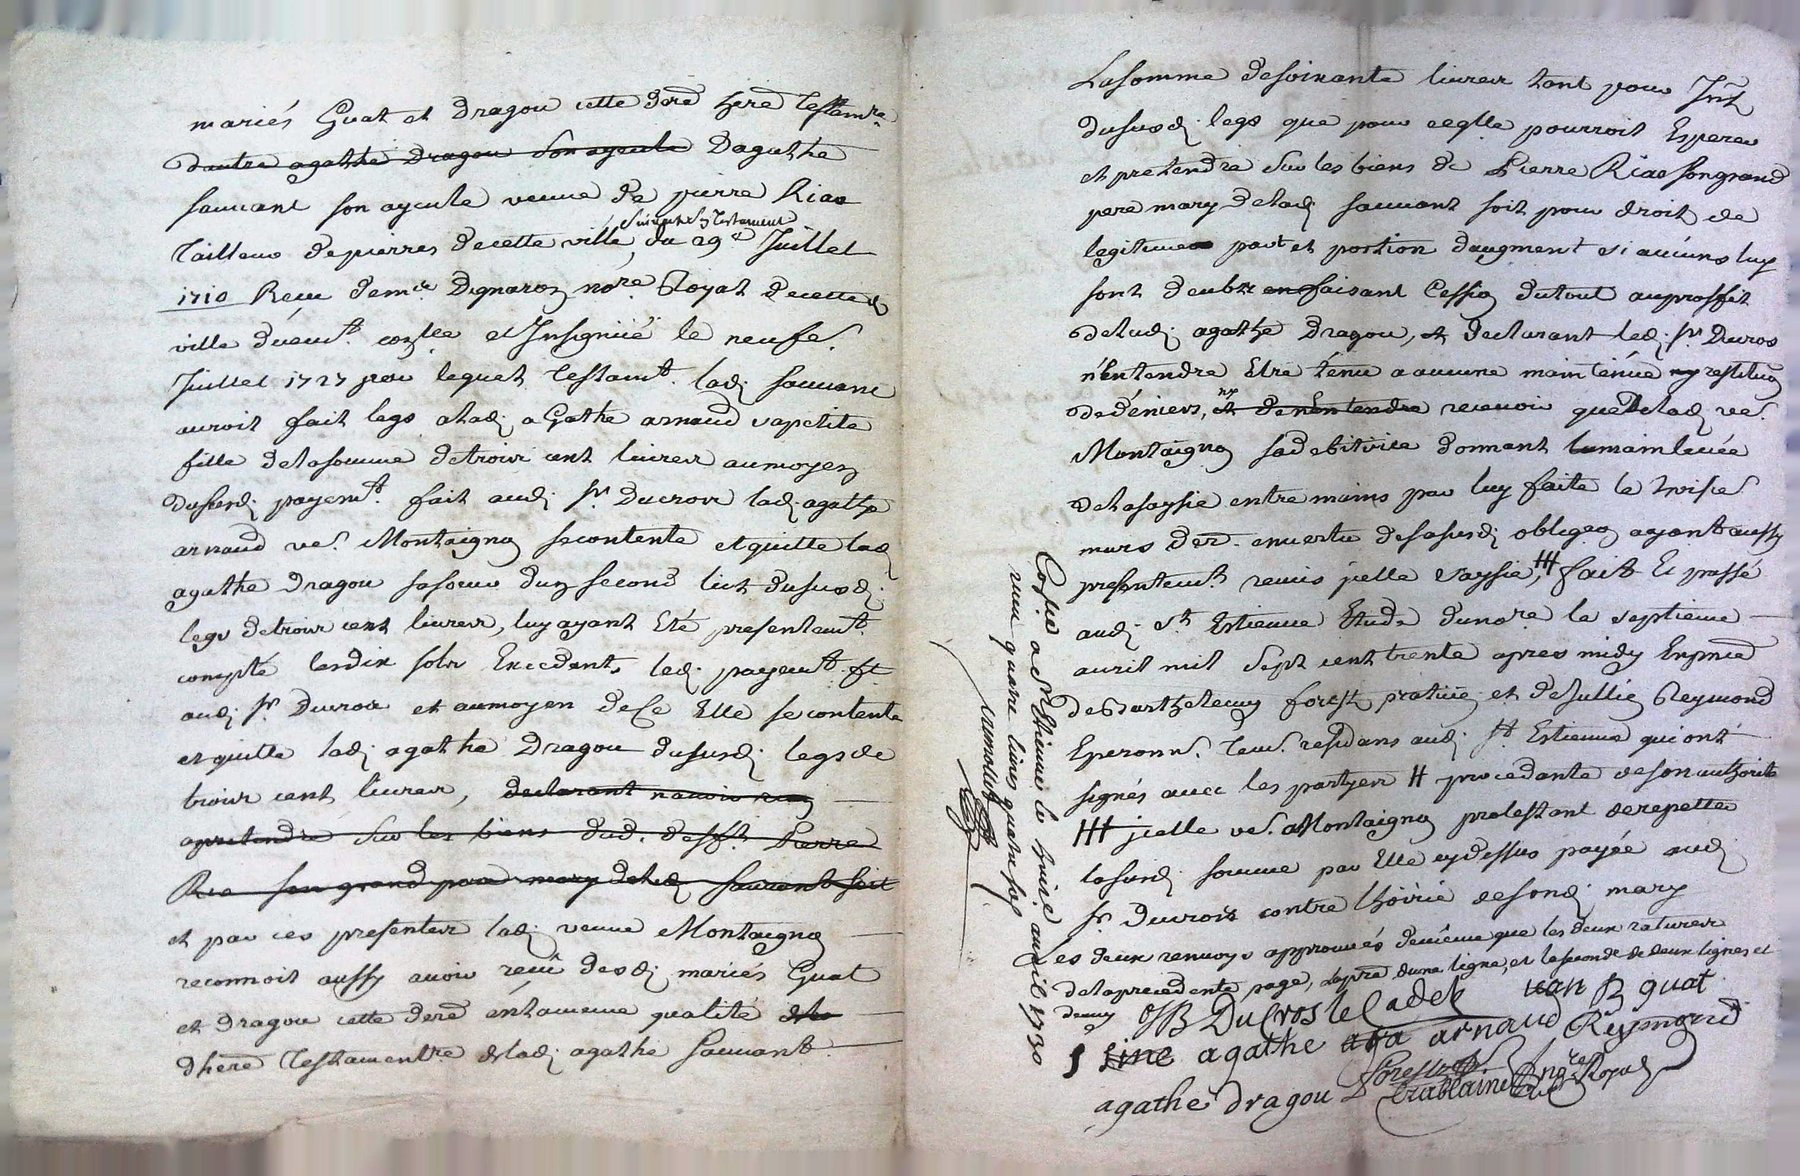 mariés Guat et Dragou cette dere here testamre
dautre agathe Dragou son ayeule Dagathe
sauvant son ayeule veuve de pierre Riao
suivant son Testament
Tailleur de pierres de cette ville, du 29e Juillet
1710 Receu de me Dignaron nore Royal de cette
ville duemt et Insignué le neufe
Juillet 1727 par lequel testamt lad. sauvant
auroit fait legs a lad. agathe arnaud sa petite
fille de la somme de trois cent livres au moyen
du surd. payemt fait aud. sr Ducros lad. agathe
arnaud ve Montaignon se contente et quitte lad.
agathe dragou sa soeur dun second lict du susd.
legs de trois cent livres, luy ayant Eté presentemt
compté les dix sols Excedants led. payemt ft
aud. sr Ducros et au moyen de ce Elle se contente
et quitte lad. agathe Dragou du surd. legs de
trois cent livres, declarant n'avoir rien
a pretendre sur les biens dud. defft Pierre
Ria son grand pere mary de lad. sauvant soit
et par ces presentes lad. veuve Montaignon
reconnoit aussy avoir receu desd. mariés Guat
et dragou cette dere en la meme qualité de
dhere testamentre de lad. agathe sauvant
La somme de soixante livres tant pour Int
du susd. legs que pour ce qlle pourroit Esperer
et pretendre sur les biens de Pierre Riao son grand
pere mary de lad. sauvant soit pour droit de
legitime part et portion daugment si aucuns luy
sont deubt en faisant Cession du tout au proffit
de lad. agathe Dragou, et declarant led. sr Ducros
n'Entendre Etre tenu a aucune maintenüe ny restitution
de deniers, et de n'entendre recevoir que de lad. ve
ny
Montaignon sa debitrice donnant la mainlevée
de la saysie entre mains par luy faite le troise
mars der. en vertu de sa susd. obligon ayant aussy
presentemt remis jcelle saysie, ## fait Et passé
aud. st Estienne Etude du nore le septieme
avril mil sept cent trente apres midy En prnce
de Barthelemy forest praticn et de Jullien Reymond
Eperonr. Tem. residans aud. st Estienne qui ont
signés avec les partyes # procedante de son authorité
## jcelle ve Montaignon protestant de repetter
la surd. somme par Elle cy dessus payée aud.
sr ducros contre lhoirie de sond. mary
les deux renvoys approuvés de même que les deux ratures
de la precedente page, la pre dune ligne, et la seconde de deux lignes et
demy
JB DuCros le Cadet
Jean B guat
sine agathe ara arnaud
Reymond
agathe dragou
Forest
Trablaine
nore Royal
Conlé a St Etienne le treize avril 1730
receu quatre livres quatre sols